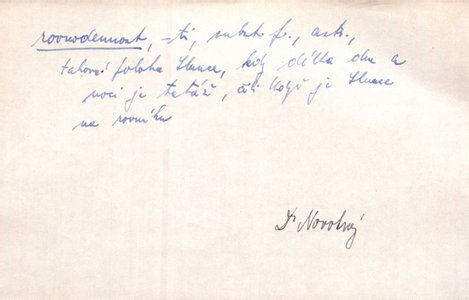 rovnodennost, -ti, subst. f., astr.,
taková poloha Slunce, kdy délka dne a
noci je táž, čili když je Slunce
na rovníku
Dr Novotný